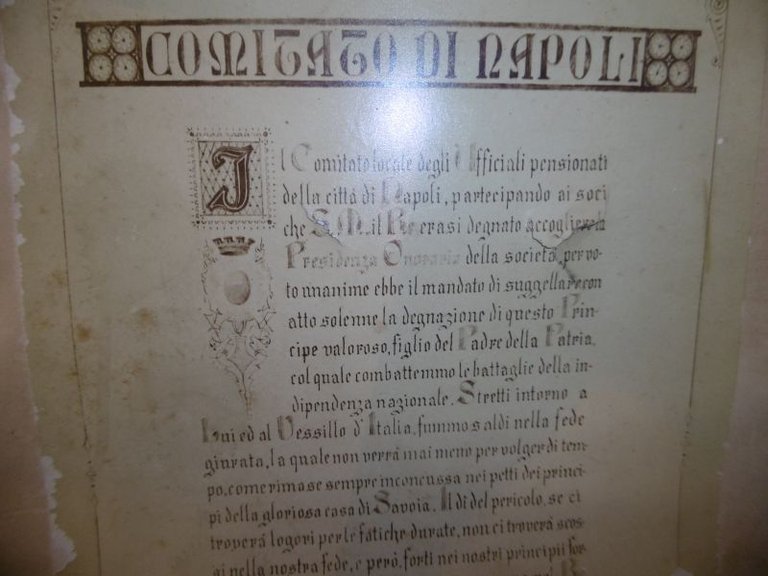 COMITATO DI NAPOLI
Il Comitato locale degli Ufficiali pensionati
della città di Napoli, partecipando ai soci
che S. M. il Re erasi degnato accoglierela
Presidenza Onoraria della società, per vo-
to unanime ebbe il mandato di suggellare con
atto solenne la degnazione di questo Prin-
cipe valoroso, figlio del Padre della Patria,
col quale combattemmo le battaglie della in-
dipendenza nazionale. Stretti intorno a
Lui ed al Vessillo d'Italia, fummo saldi nella fede
giurata, la quale non verrá mai meno per volger di tem-
po, come rimase sempre inconcussa nei petti dei princi-
pi della gloriosa casa di Savoia. Il dì del pericolo, se ci
troverá logori per le fatiche durate, non ci troverá scos-
si nella nostra fede, e peró, forti nei nostri principii for-